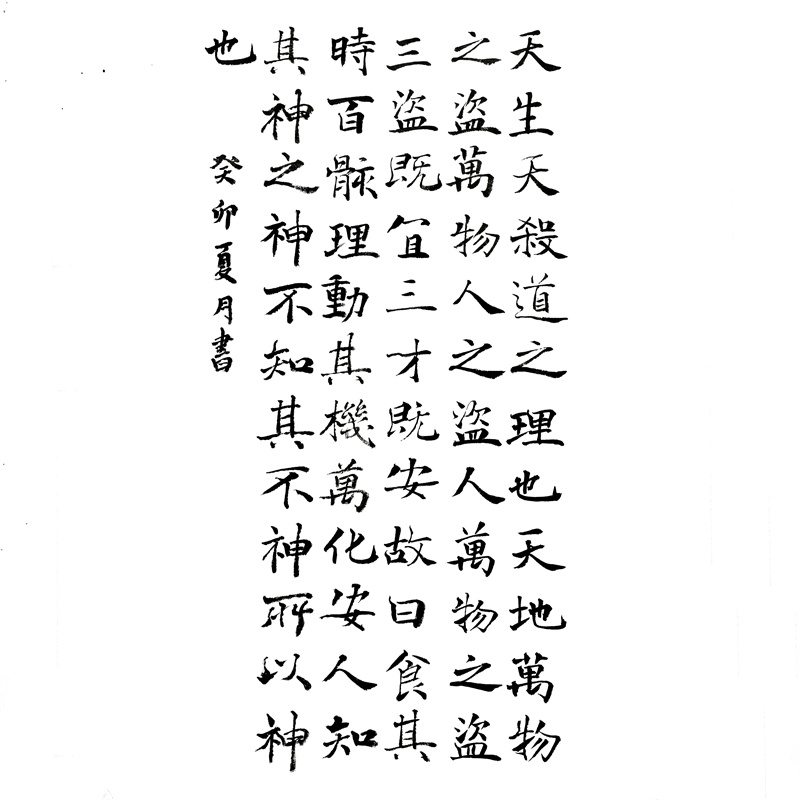 天生天殺道之理也天地萬物
之盜萬物人之盜人萬物之盜
三盜既宜三才既安故曰食其
時百骸理動其機萬化安人知
其神之神不知其不神所以神
也
癸卯夏月書